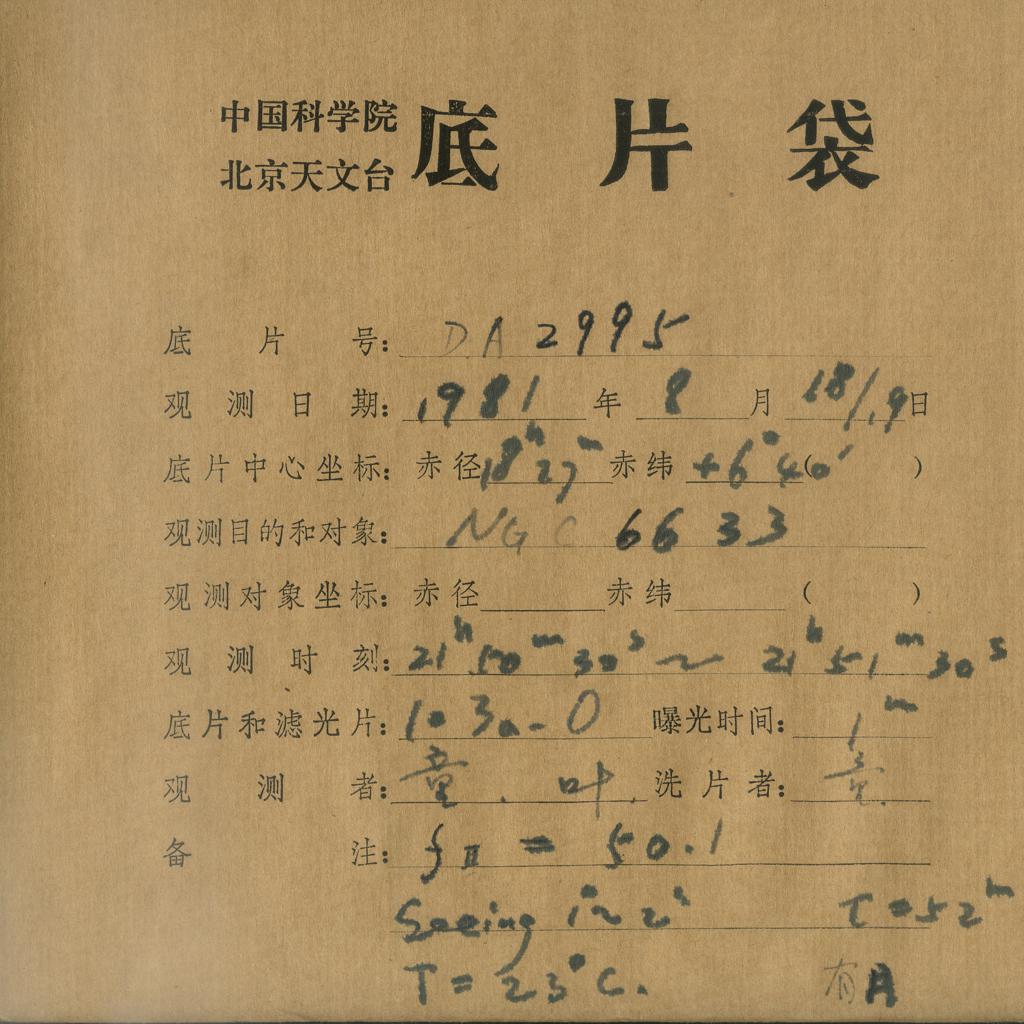 中国科学院
北京天文台
底片袋
底片号：DA 2995
观测日期：1981年 8月 18/19日
底片中心坐标：赤径18ʰ27ᵐ 赤纬+6°40′( )
观测目的和对象：NGC 6633
观测对象坐标：赤径 赤纬 ( )
观测时刻：21ʰ50ᵐ30ˢ ~ 21ʰ51ᵐ30ˢ
底片和滤光片：103a-O 曝光时间：1ᵐ
观测者：童. 叶. 洗片者：童.
备注：fⅡ = 50.1
Seeing 1"~2" T=52ᵐ
T = 23°C.
有月